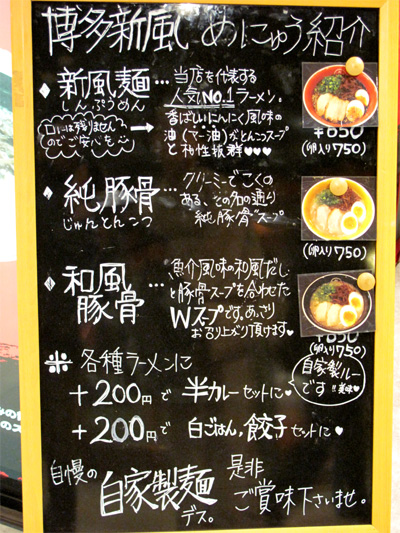 博多新風 めにゅう紹介
新風麺…
しんぷうめん
当店を代表する
人気NO.1ラーメン。
香ばしいにんにく風味の
油(マー油)がとんこつスープ
と相性抜群♥♥♥
口には残りません
のでご安心を
¥650
(卵入り750)
純豚骨…
じゅんとんこつ
クリーミーでこくの
ある、その名の通り
純豚骨スープ
(卵入り750)
和風
豚骨…
魚介風味の和風だし
と豚骨スープを合わせた
Wスープです。あっさり
お召し上がり頂けます♥
¥650
(卵入り750)
※各種ラーメンに
+200円で 半カレーセットに♥
自家製ルー
です!!美味♥
+200円で 白ごはん,餃子セットに♥
自慢の
自家製麺
デス。
是非
ご賞味下さいませ。